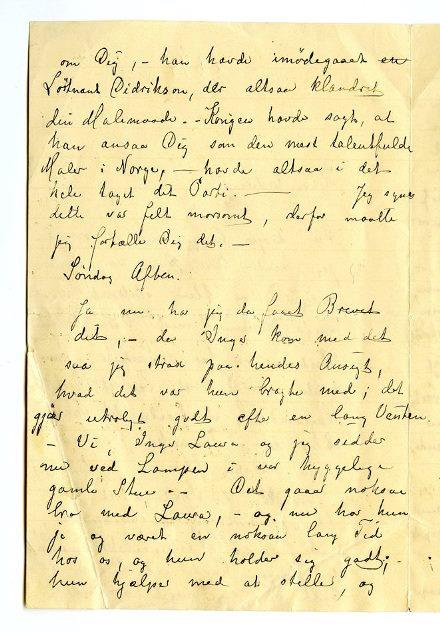 om Dig, – han havde imødegaaet en
Løitnant Didrikson, der altsaa klandret
din Malemaade. – Kongen havde sagt, at
han ansaa Dig som den mest talentfulde
Maler i Norge, – havde altsaa i det
hele taget dit Parti. — Jeg synes
dette var felt morsomt, derfor maatte
jeg fortælle Dig det. –
Søndag Aften.
Ja nu har jeg da faaet Brevet
dit, – da Inger kom med det
saa jeg strax paa hendes Ansigt,
hvad det var hun bragte med; det
gjør utroligt godt efter en lang Venten.
– Vi, Inger Laura og jeg sidder
nu ved Lampen i vor hyggelige
gamle Stue. – Det gaar noksaa
bra med Laura, – og nu har hun
jo og været en noksaa lang Tid
hos os, og hun holder sig godt; –
hun hjælper med at stelle, og